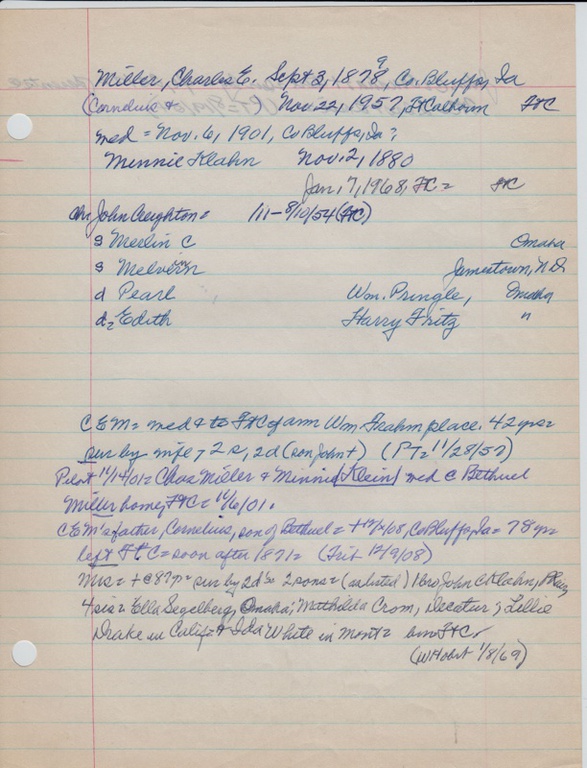 Miller, Charles E. Sept 3, 1878 9, Co. Bluffs, Ia
(Cornelius & ) Nov. 22, 1957, Ft Calhoun FtC
med = Nov. 6, 1901, Co Bluffs, Ia?
Minnie Klahn Nov. 2, 1880
Jan. 7, 1968, FC = FtC
ch John Creighton = 111 - 8/10/54 (FtC)
s Merlin C Omaha
s Melvern Jamestown, N.D.
d Pearl Wm. Pringle, Omaha
d2 Edith Harry Fritz "
C E M = med & to FtC farm Wm Frahm place. 42 yrs =
sur by wife, 2 s, 2d (son John +) (PT = 11/28/57)
Pilot 11/14/01 = Chas Miller & Minnie (Klein) med @ Bethuel
Miller home, FtC = 11/6/01.
C E M's father, Cornelius, son of Bethuel = + /08, Co Bluffs, Ia = 78 yrs
left FtC = soon after 1871 = (Trib 12/9/08)
Mrs = + @ 87 yr = sur by 2d's 2 sons = (as listed) 1 bro John C Klahn,
4 sis = Ella Segelberg, Omaha; Mathilda Crom, Decatur; Lillie
Drake in Calif = & Ida White in Mont = bur FtC
(W Hobst 1/8/69)